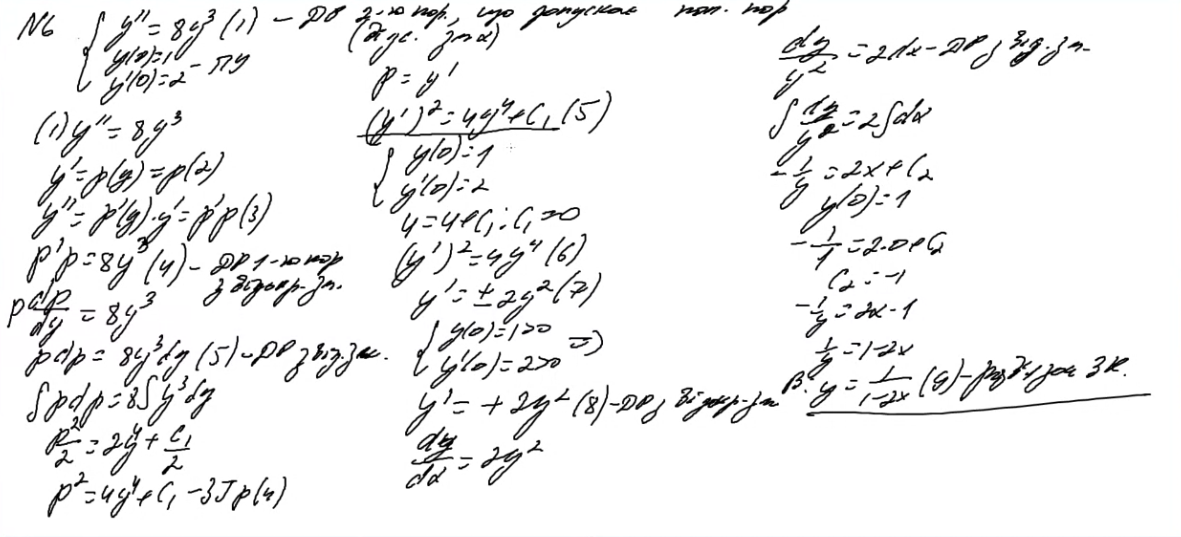 N6 { y'' = 8y³ (1) - ДР 2-го пор., що допускає пон. пор
y(0)=1
y'(0)=2 - ПУ
(1) y'' = 8y³
y' = p(y) = p (2)
y'' = p'(y)·y' = p'p (3)
p'p = 8y³ (4) - ДР 1-го пор
з відокр. зм.
p dp/dy = 8y³
pdp = 8y³dy (5) - ДР з від. зм.
∫pdp = 8∫y³dy
p²/2 = 2y⁴ + C₁/2
p² = 4y⁴ + C₁ - ЗІ р (4)
p = y'
(y')² = 4y⁴ + C₁ (5)
{ y(0) = 1
y'(0) = 2
4 = 4 + C₁; C₁ = 0
(y')² = 4y⁴ (6)
y' = ± 2y² (7)
{ y(0) = 1 > 0
y'(0) = 2 > 0 =>
y' = + 2y² (8) - ДР з відокр. зм
dy/dx = 2y²
dy/y² = 2dx - ДР з від. зм.
∫ dy/y² = 2∫dx
-1/y = 2x + C₂
y(0) = 1
-1/1 = 2·0 + C₂
C₂ = -1
-1/y = 2x - 1
1/y = 1 - 2x
В: y = 1/(1-2x) (9) - зад ЗК.